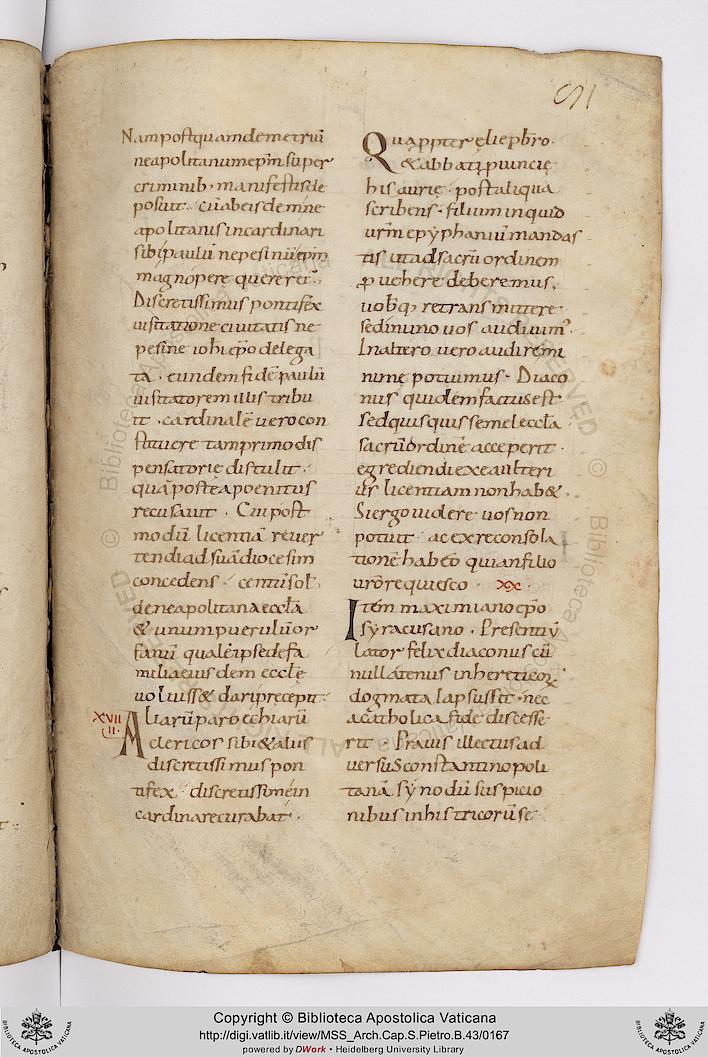 Nam postquam demetriū
neapolitanum ep̄m super
criminib; manifestis de
posuit · cū ab eis demine
apolitanis incardinari
sibi paulū nepesinū ep̄m
magnopere quereret ·
Discretissimus pontifex
uisitatione ciuitatis ne
pesine ioh̄i ep̄o delega
ta · eundem fidē paulū
uisitatorem illis tribu
it · cardinalē uero con
stituere tam primo dis
pensatorie distulit ·
quā postea poenitus
recusauit · Cui post
modū licentiā reuer
tendi ad suā diocesim
concedens · centū sol̄
de neapolitana eccl̄a
& unum puerulū or
fanū qualē ipse de fa
milia eiusdem eccl̄ę
uoluiss& dari precepit ·
XVII
II ·
Aliarū parocchiarū
clericos sibi & alius
discretissimus pon
tifex · discretissime in
cardinare curabat ·
Quapp̄ter ęlie p̄br̄o ·
& abbati p̱uincię
hisaurię · post aliqua
scribens · filium inquid
ur̄m epyphaniū mandas
tis ut ad sacrū ordinem
ꝓuehere deberemus ·
uobq; retransmittere
sed in uno uos audiuim;
In altero uero audiri mi
nime potuimus · Diaco
nus quidem factus est
sed quisquis semel eccl̄a
sacrū ordinē acceperit ·
egrediendi ex ea ulteri
us licentiam non hab& ·
Si ergo uidere uos non
potuit · ac ex re consola
tionē habeo quia in filio
ur̄o requiesco · XX ·
Itēm maximiano ep̄o
syracusano · Presentiū
lator felix diaconus cū
nullatenus in hereticoꝝ
dogmata lapsus sit · nec
a catholica fide discesse
rit · Prauis illectus ad
uersus constantinopoli
tanā synodū suspicio
nibus in histricorū se
Copyright © Biblioteca Apostolica Vaticana
http://digi.vatlib.it/view/MSS_Arch.Cap.S.Pietro.B.43/0167
powered by DWork • Heidelberg University Library